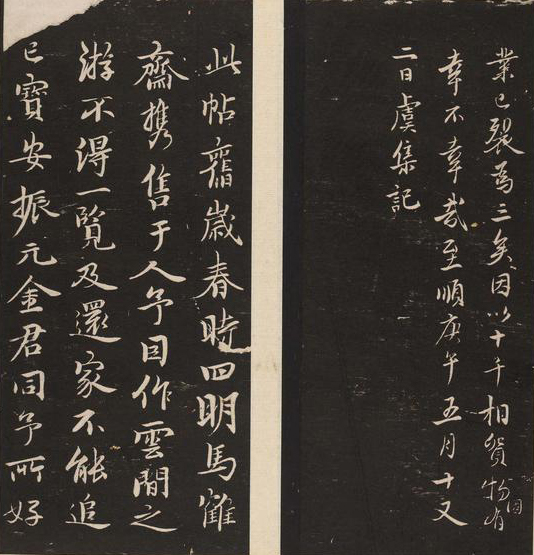 業已裂為三矣因以十千相貿物固有
幸不幸哉至順庚午五月十又
二日虞集記
此帖舊歲春時四明馬隺
齋携售于人予因作雲間之
游不得一覽及還家不能追
已寶安振元金君同予所好